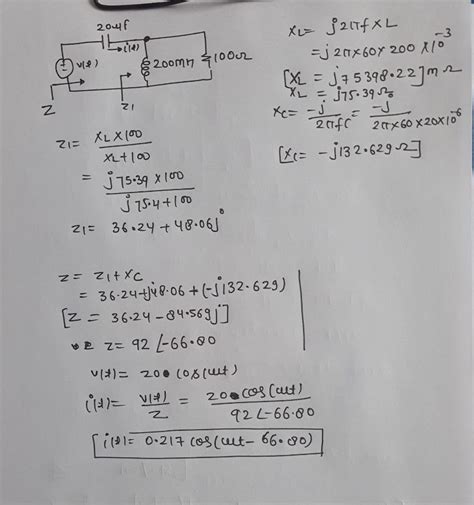 20μf
i(t)
v(t)
200mH
100Ω
Z
Z1
XL = j2πf×L
= j2π×60×200×10^-3
[XL = j75398.22] mΩ
XL = j75.39Ω
XC = -j/2πfC = -j/2π×60×20×10^-6
[XC = -j132.629Ω]
Z1 = XL×100/XL+100
= j75.39×100/j75.4+100
Z1 = 36.24+48.06j
Z = Z1+XC
= 36.24+j48.06+(-j132.629)
[Z = 36.24-84.569j]
Z = 92∠-66.80
v(t) = 20cos(ωt)
i(t) = v(t)/Z = 20cos(ωt)/92∠-66.80
[i(t) = 0.217cos(ωt-66.80)